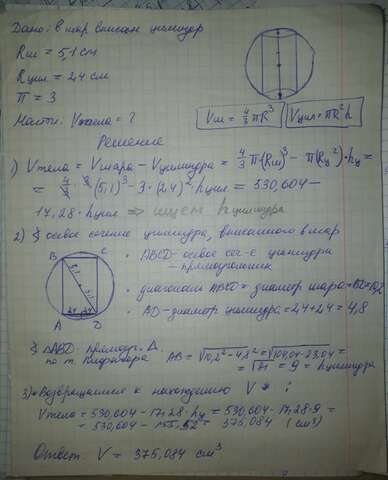 Дано: в шар вписан цилиндр
Rш = 5,1 см
Rцил = 2,4 см
П = 3
Найти: Vтела = ?
Vш = 4/3 πR³
Vцил = πR²h
Решение
1) Vтела = Vшара – Vцилиндра = 4/3 π(Rш)³ – π(Rц)²·hц =
= 4/3 · 3 (5,1)³ – 3·(2,4)²·hцил = 530,604 –
17,28·hцил => ищем hцилиндра
2) осевое сечение цилиндра, вписанного в шар
B C
5,1
5,1
2,4 2,4
A D
• ABCD – осевое сеч-е цилиндра
– прямоугольник
• диагональ ABCD = диаметр шара = BD = 10,2
• AD – диаметр цилиндра = 2,4+2,4 = 4,8
ΔABD – прямоуг. Δ
по т. Пифагора AB = √10,2² – 4,8² = √104,04 – 23,04 =
= √81 = 9 = hцилиндра
3) Возвращаемся к нахождению V
Vтела = 530,604 – 17,28·hц = 530,604 – 17,28·9 =
= 530,604 – 155,52 = 375,084 (см³)
Ответ: V = 375,084 см³